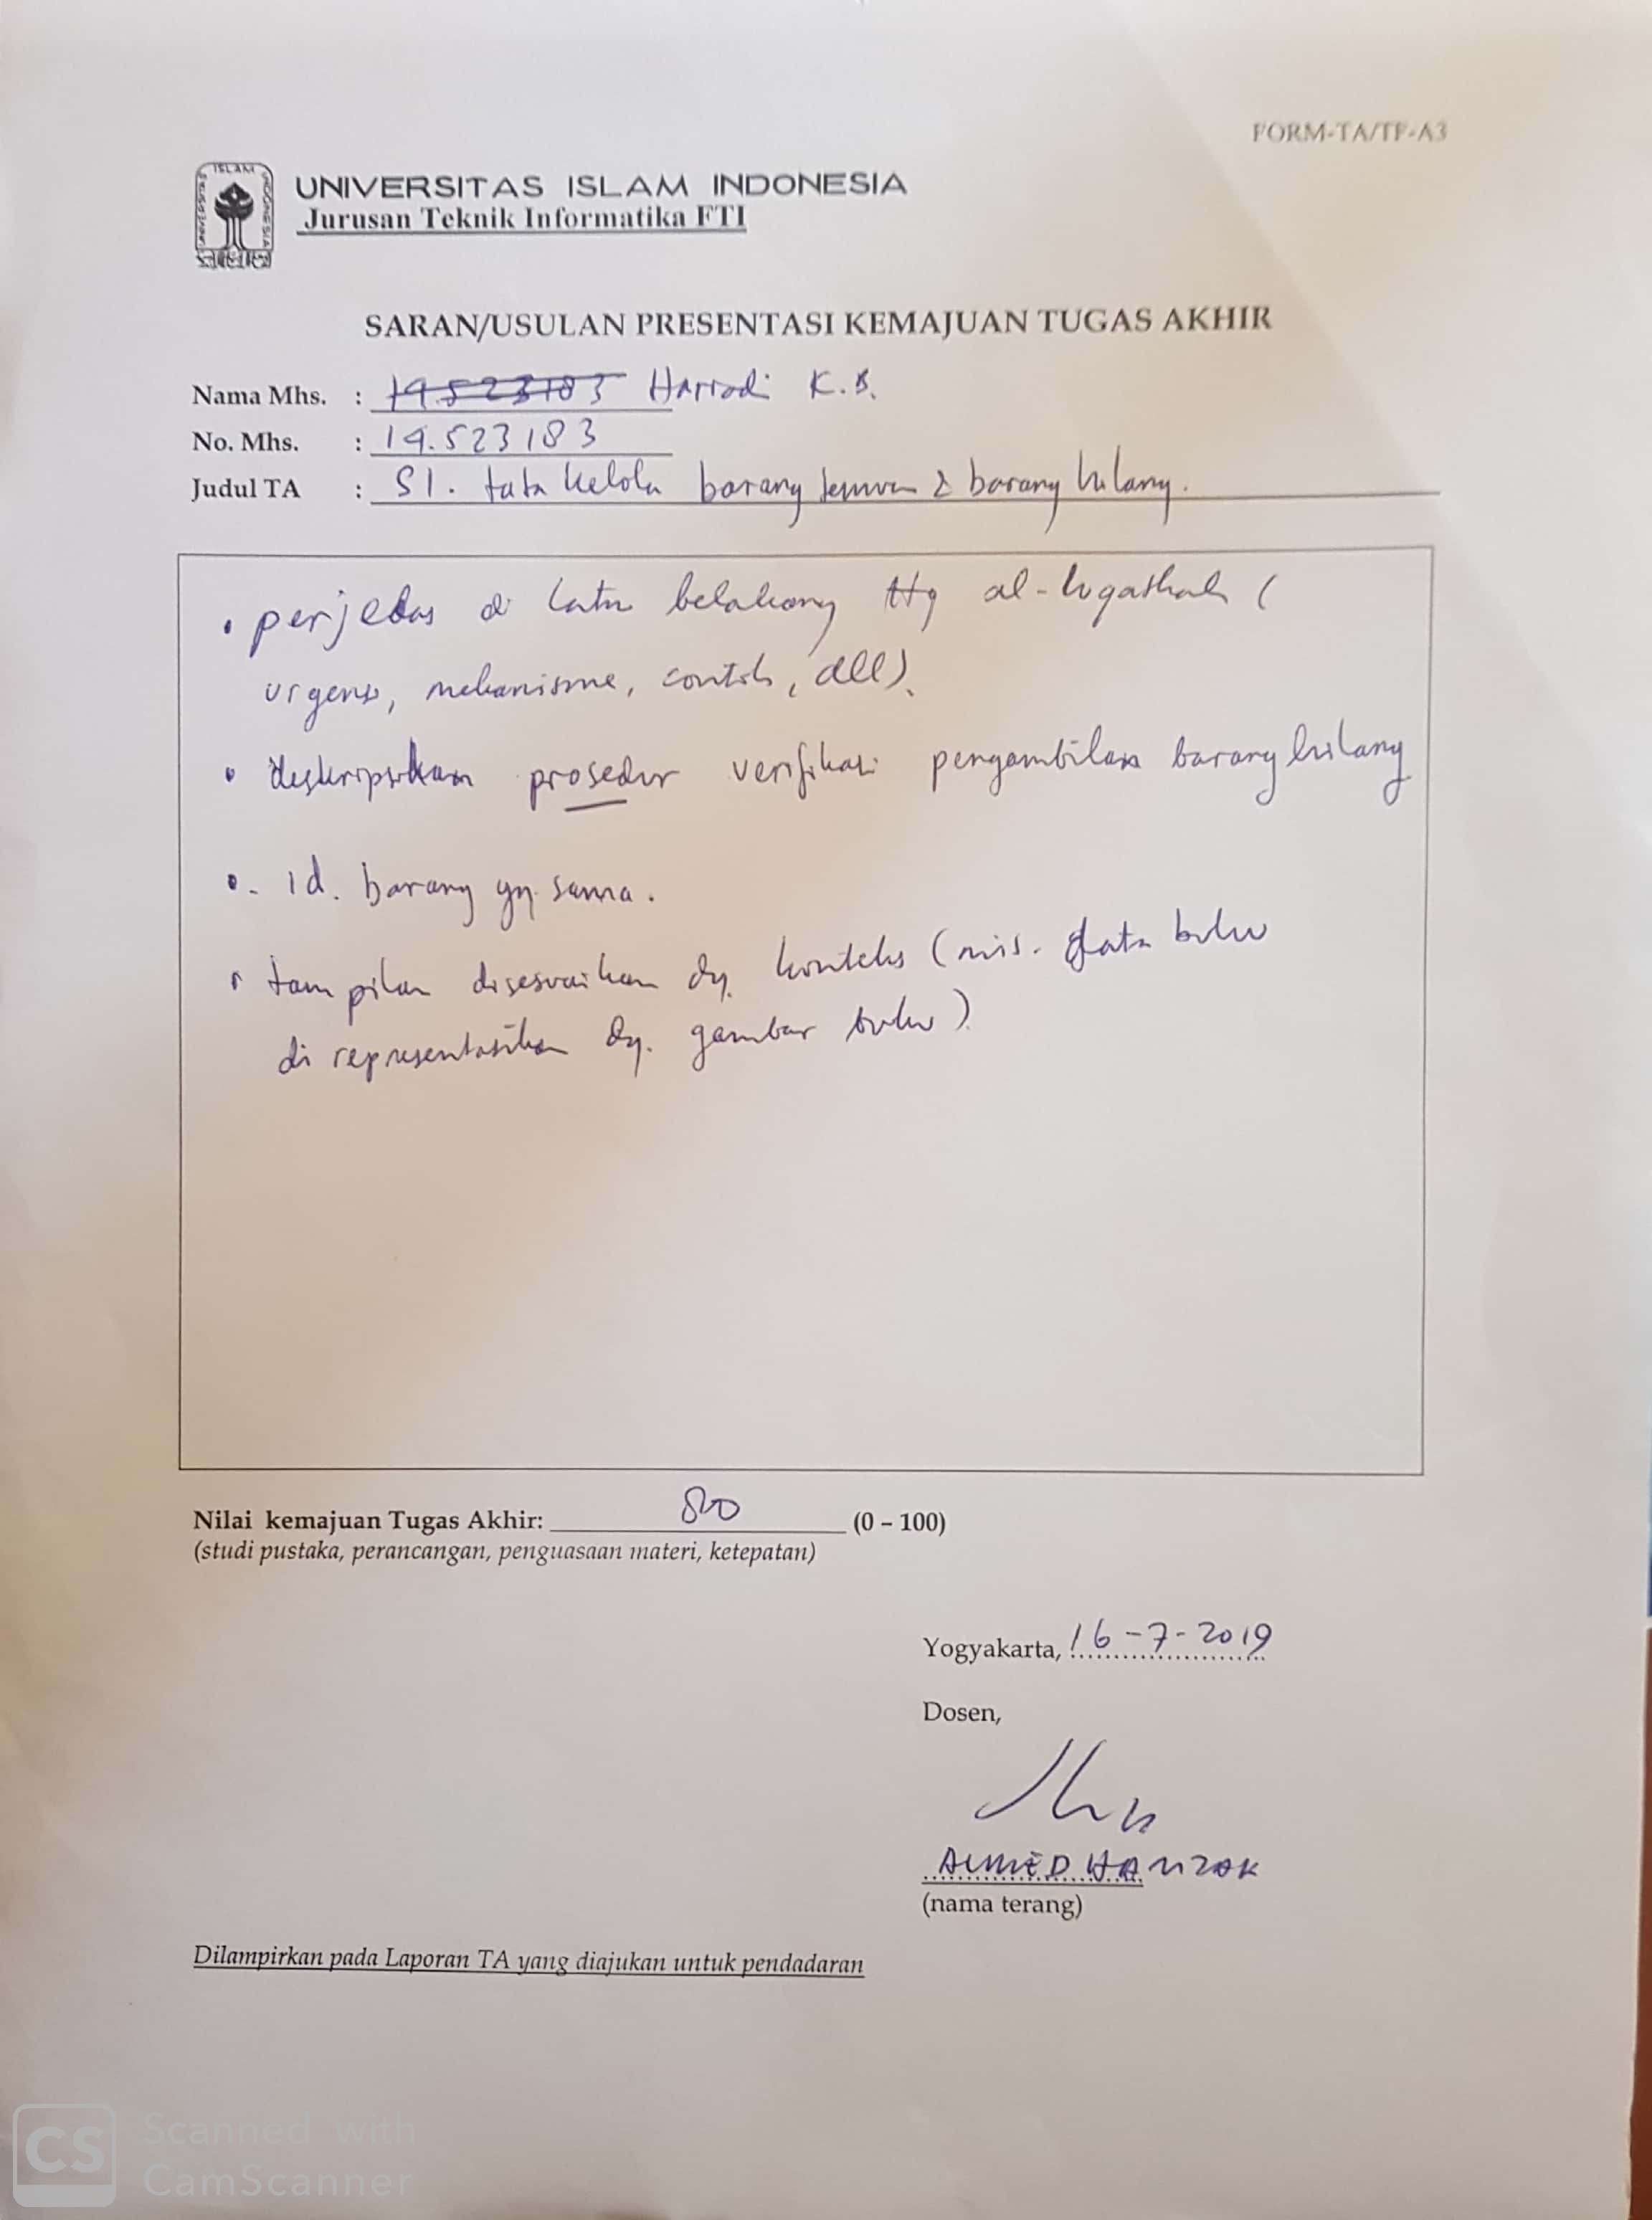 FORM-TA/TF-A3
UNIVERSITAS ISLAM INDONESIA
Jurusan Teknik Informatika FTI
SARAN/USULAN PRESENTASI KEMAJUAN TUGAS AKHIR
Nama Mhs. : 14.523183 Harrodi K.B.
No. Mhs. : 14.523183
Judul TA : SI. tata kelola barang temuan & barang hilang.
• perjelas di latar belakang ttg al-luqathah (
urgensi, mekanisme, contoh, dll).
• deskripsikan prosedur verifikasi pengambilan barang hilang
• - id. barang yg. sama.
• tampilan disesuaikan dg. konteks (mis. data buku
di representasikan dg. gambar buku)
Nilai kemajuan Tugas Akhir: 80 (0 – 100)
(studi pustaka, perancangan, penguasaan materi, ketepatan)
Yogyakarta, 16-7-2019
Dosen,
AHMED HAMZAH
(nama terang)
Dilampirkan pada Laporan TA yang diajukan untuk pendadaran
CS Scanned with
CamScanner